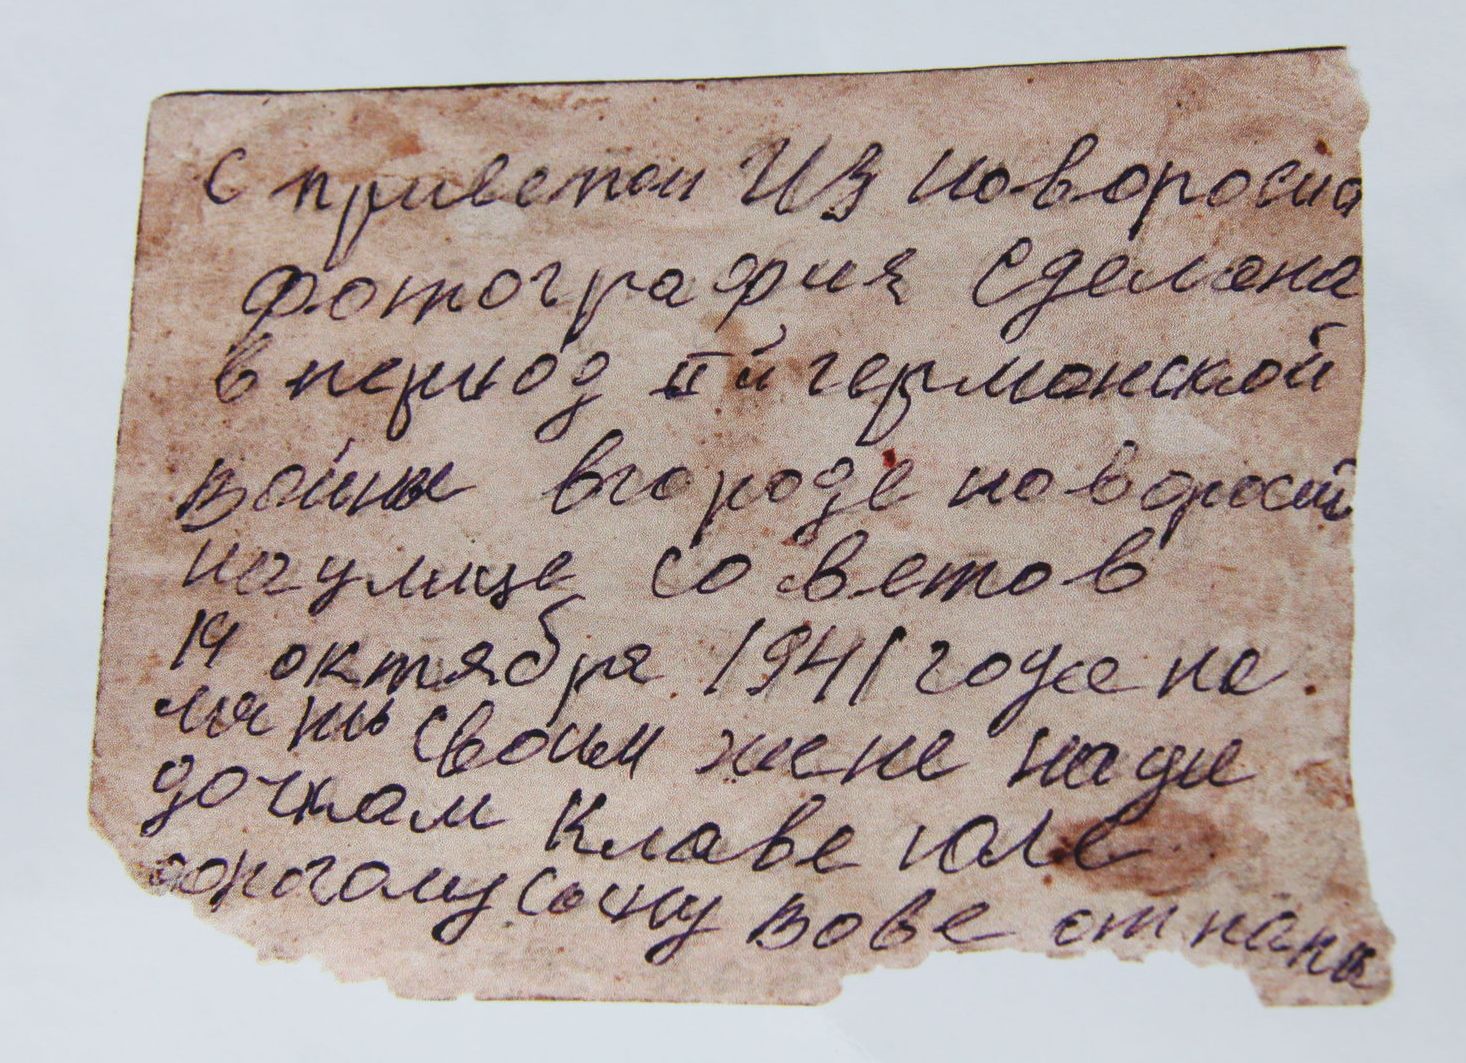 с приветом Из новоросиа
фотография сделана
в период II й германской
войны вгороде новоросий
на улице советов
14 октября 1941 года па
мять своим жене нади
дочкам Клаве юле
дорогому сочну вове от папы